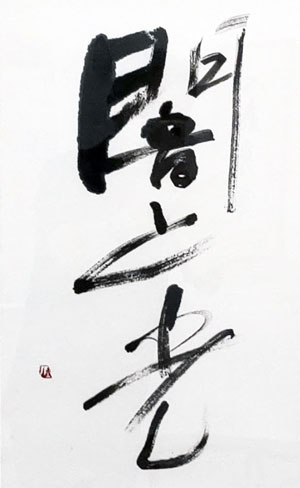 闇と光